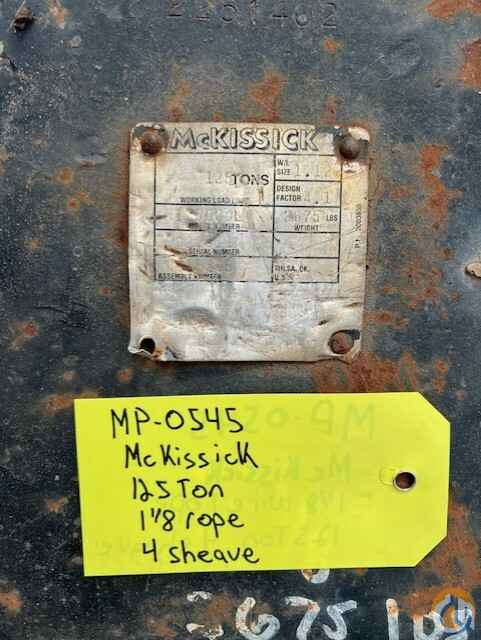 2251462
McKISSICK
125 TONS
WORKING LOAD LIMIT
W/L
SIZE 1.12
DESIGN
FACTOR 4:1
MODEL NUMBER
3675 LBS
WEIGHT
SERIAL NUMBER
ASSEMBLY NUMBER
TULSA, OK.
U.S.A.
MP-0545
McKissick
125 Ton
1 1/8 rope
4 sheave
3675 lbs